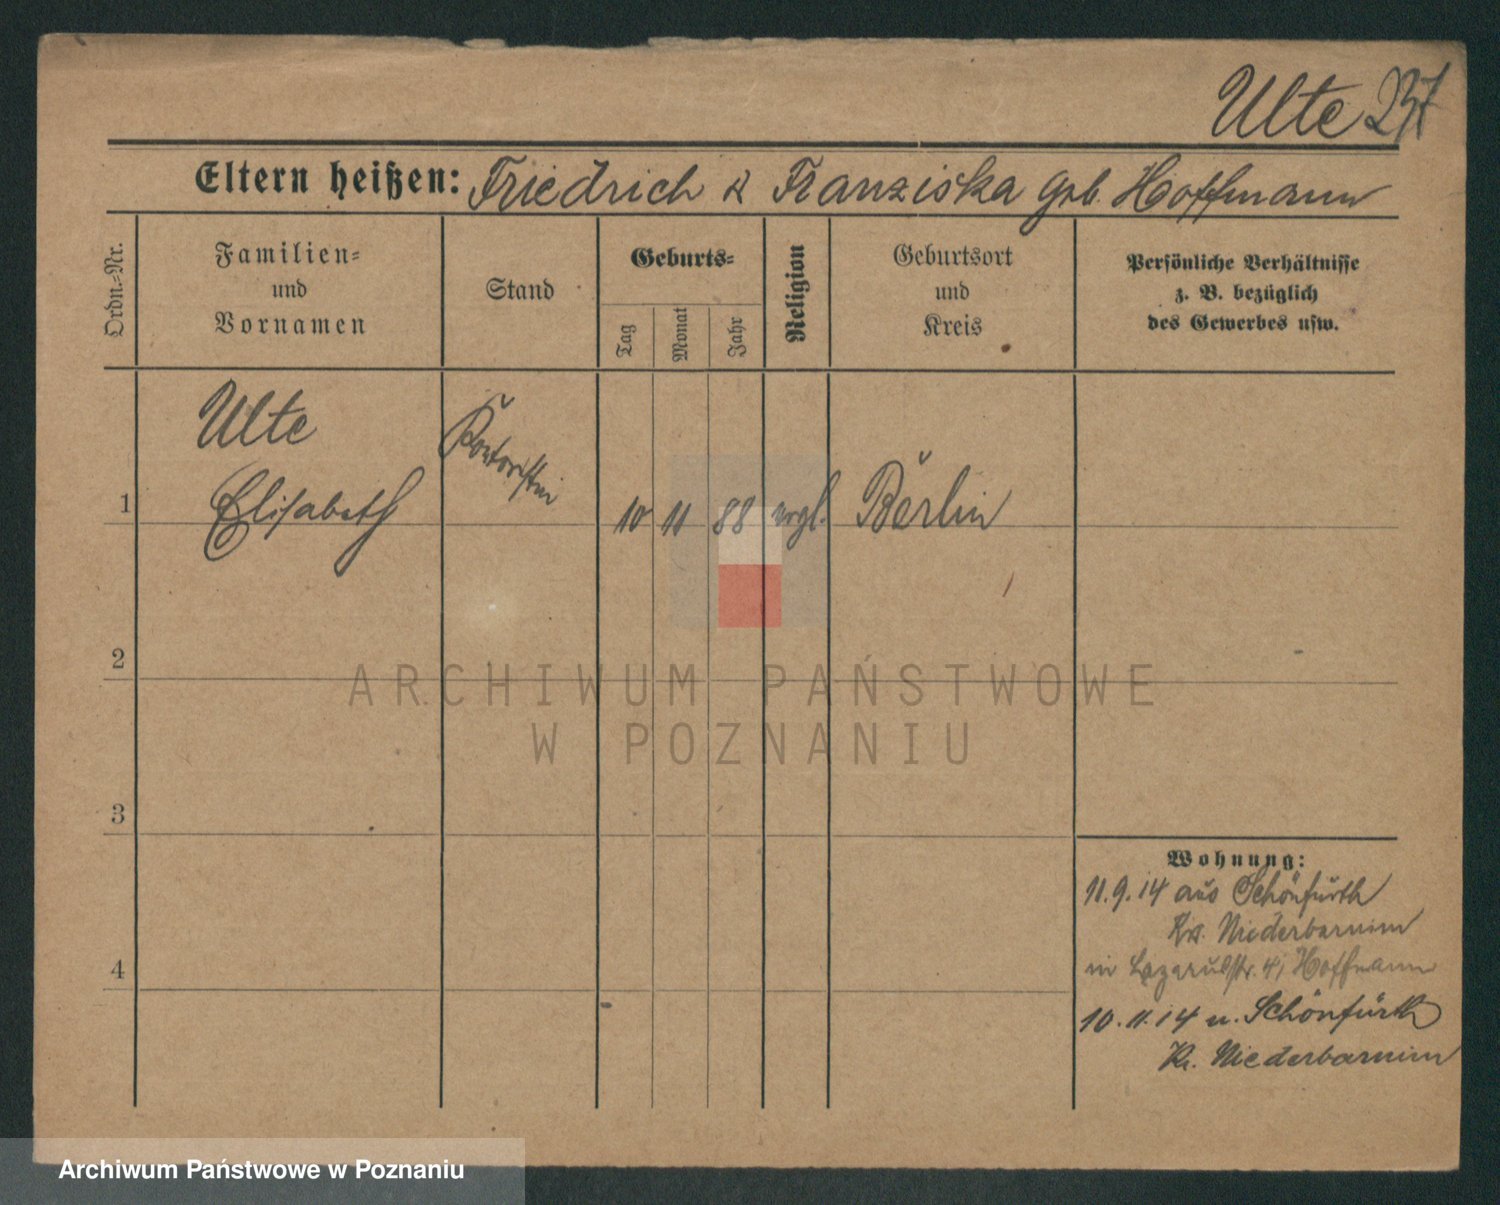 Ulte 237
Eltern heißen: Friedrich & Franziska geb. Hoffmann
Ordn.-Nr.
Familien-
und
Vornamen
Stand
Geburts-
Tag
Monat
Jahr
Religion
Geburtsort
und
Kreis
Persönliche Verhältnisse
z. B. bezüglich
des Gewerbes usw.
Ulte
Kontoristin
1 Elisabeth 10 11 88 evgl. Berlin
2
ARCHIWUM PAŃSTWOWE
W POZNANIU
3
Wohnung:
11.9.14 aus Schönfürth
Krs. Niederbarnim
4
in Lazarusstr. 4, Hoffmann
10.11.14 n. Schönfürth
Kr. Niederbarnim
Archiwum Państwowe w Poznaniu